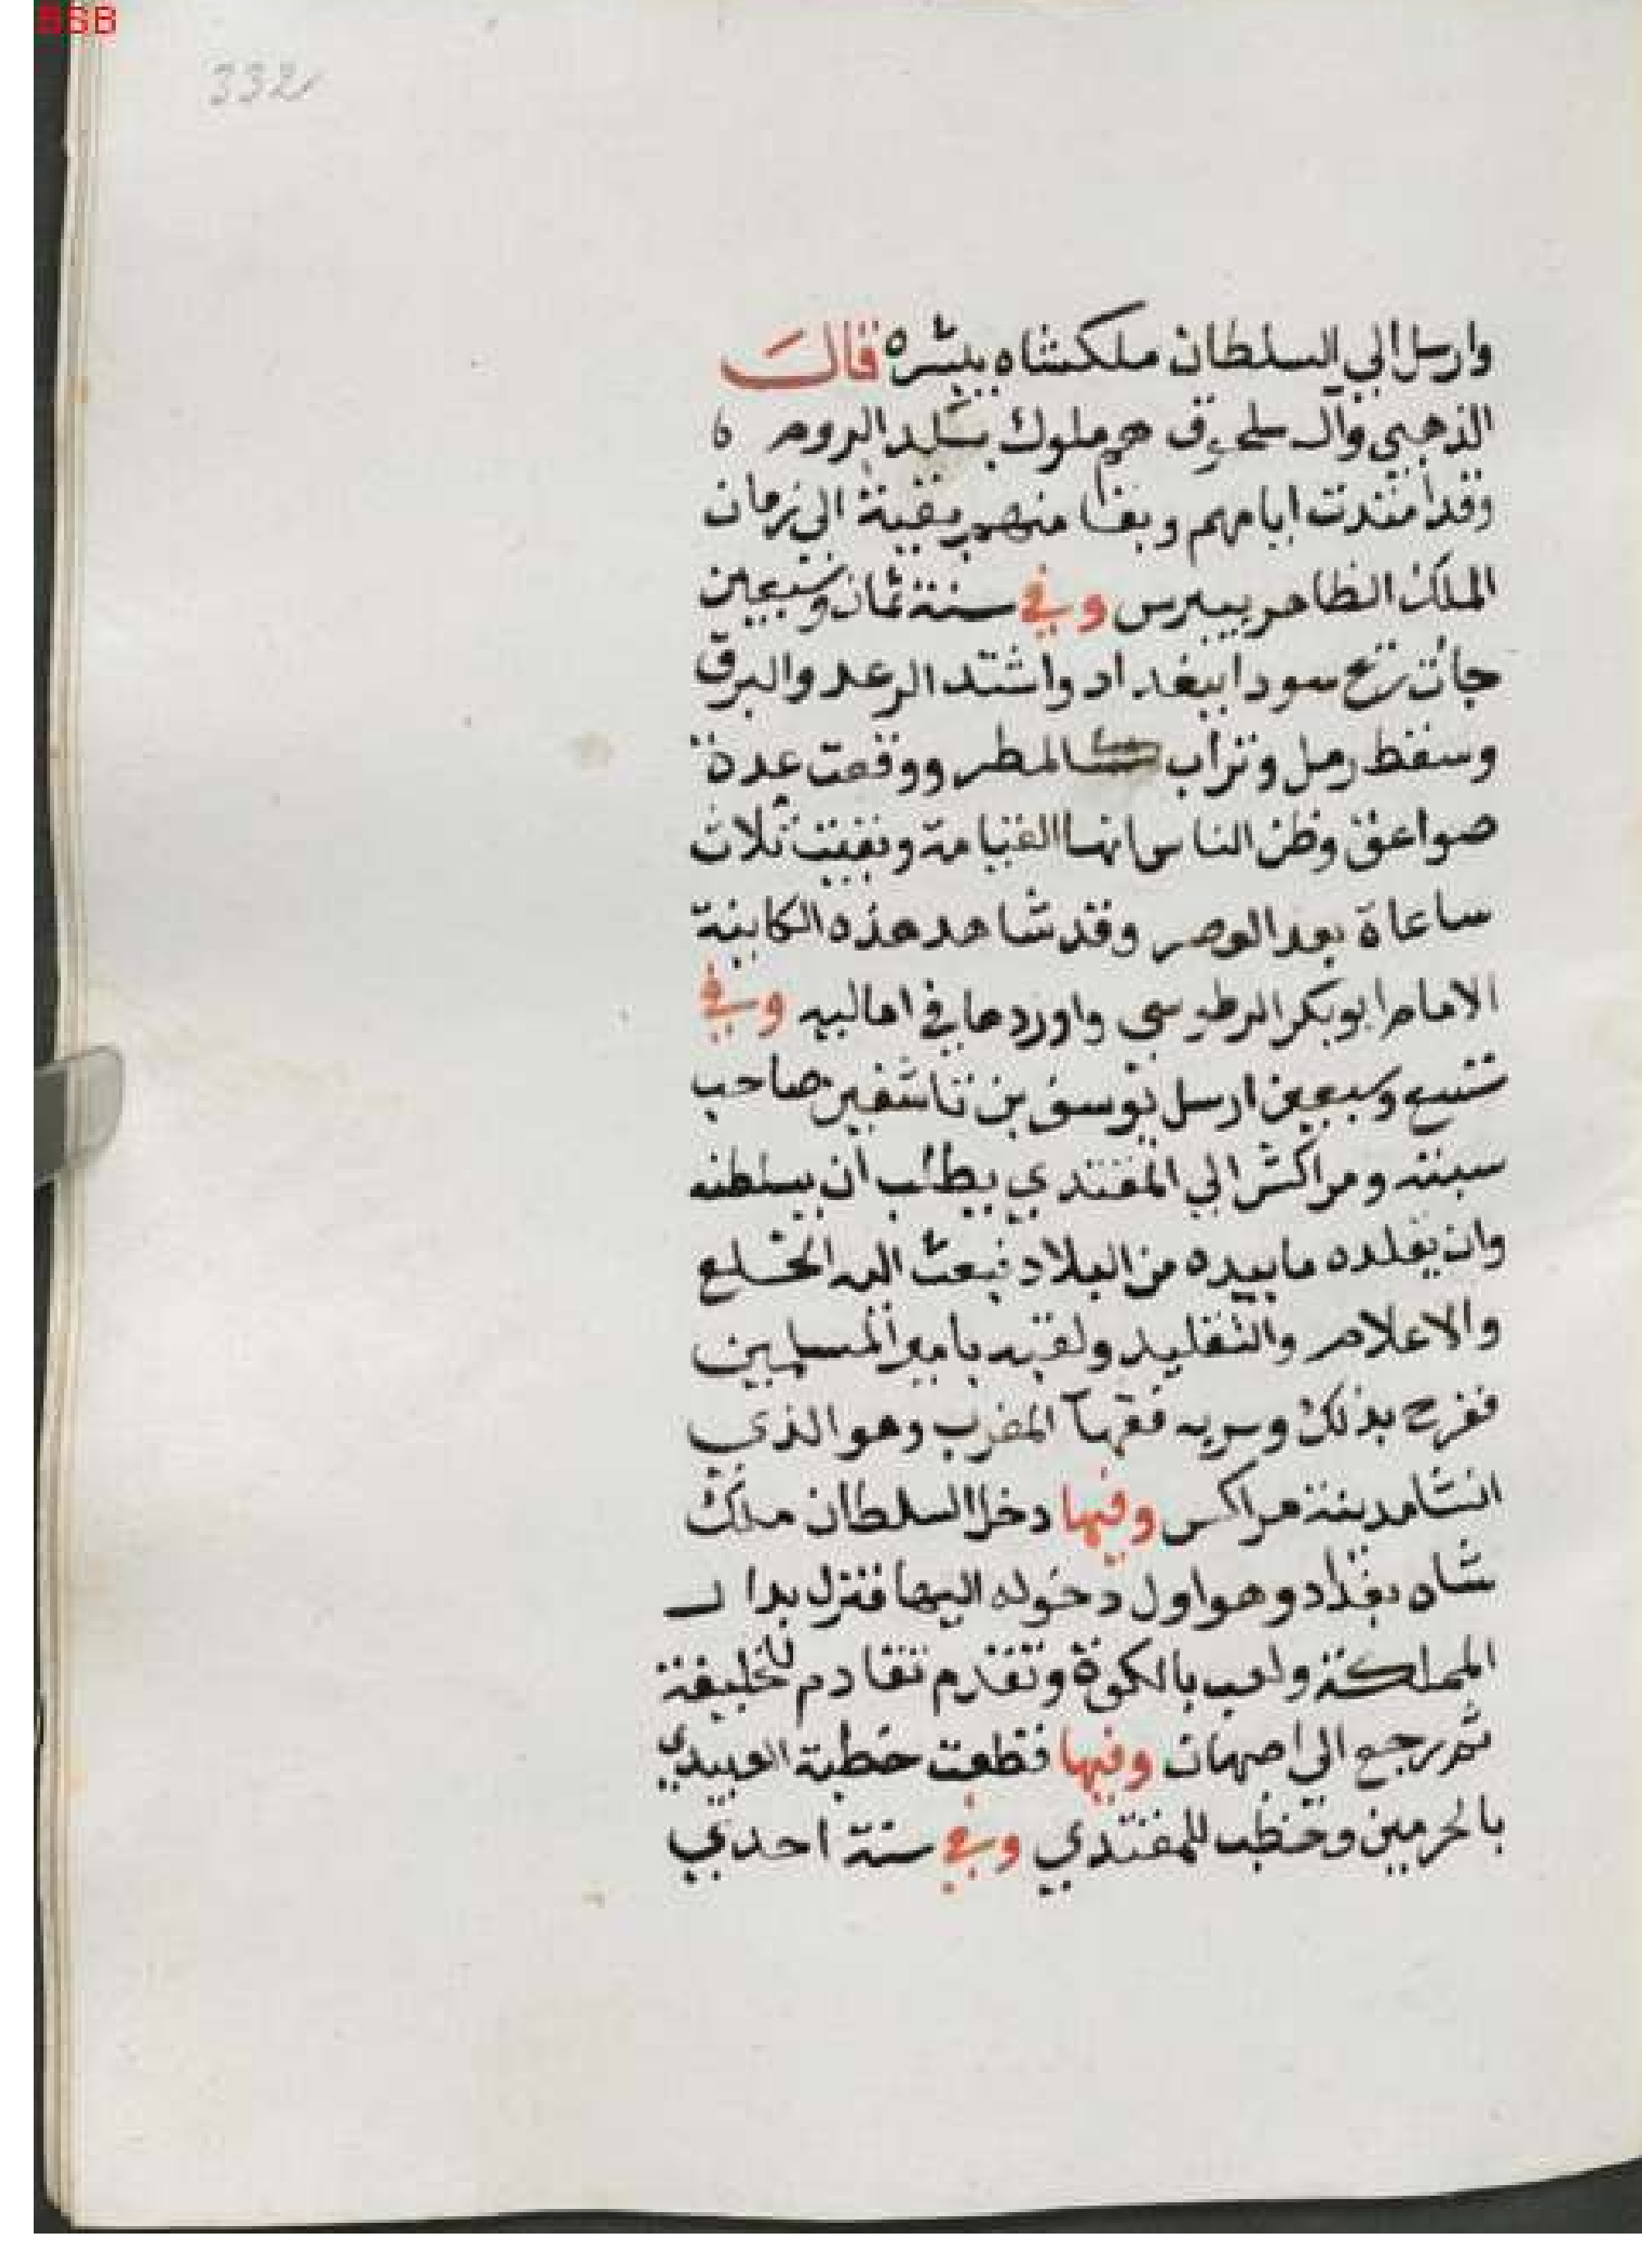 BSB
332
وارسل الي السلطان ملكشاه يبشره قال
الذهبي وآل سلجوق هم ملوك بلد الروم
وقد امتدت ايامهم وبقا منهم بقية الي زمان
الملك الظاهر بيبرس وفي سنة ثمان وسبعين
جات ريح سودا ببغداد واشتد الرعد والبرق
وسقط رمل وتراب كالمطر ووقعت عدة
صواعق وظن الناس انها القيامة وبقيت ثلاث
ساعاة بعد العصر وقد شاهد هذه الكاينة
الامام ابو بكر الرطوسي واوردها في اماليه وفي
تسع وسبعين ارسل يوسف بن تاشفين صاحب
سبته ومراكش الي المقتدي يطلب ان يسلطنه
وان يقلده ما بيده من البلاد فبعث اليه الخلع
والاعلام والتقليد ولقبه بامير المسلمين
ففرح بذلك وسر به فقهآ المغرب وهو الذي
انشا مدينة مراكس وفيها دخل السلطان ملك
شاه بغداد وهو اول دخوله اليها فنزل بدار
المملكة ولعب بالكرة وتقدم تقادم للخليفة
ثم رجع الي اصبهان وفيها قطعت خطبة العبيدي
بالحرمين وخطب للمقتدي وفي سنة احدي